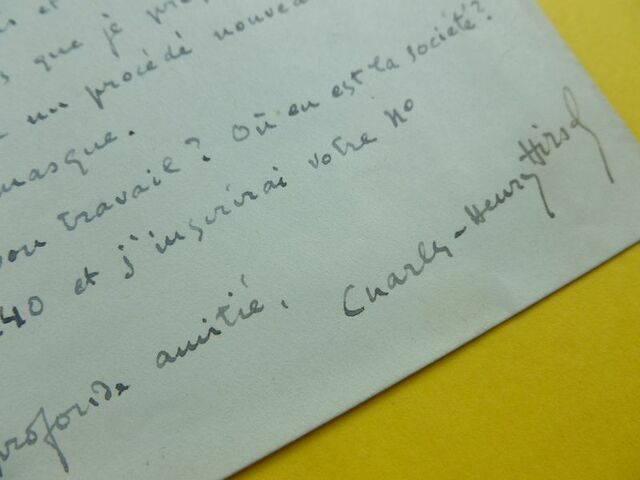 et
que je
un procédé nouveau
masque.
bon travail? Où en est la société?
40 et j'inscrirai votre no
profonde amitié.
Charles-Henry Hirsch